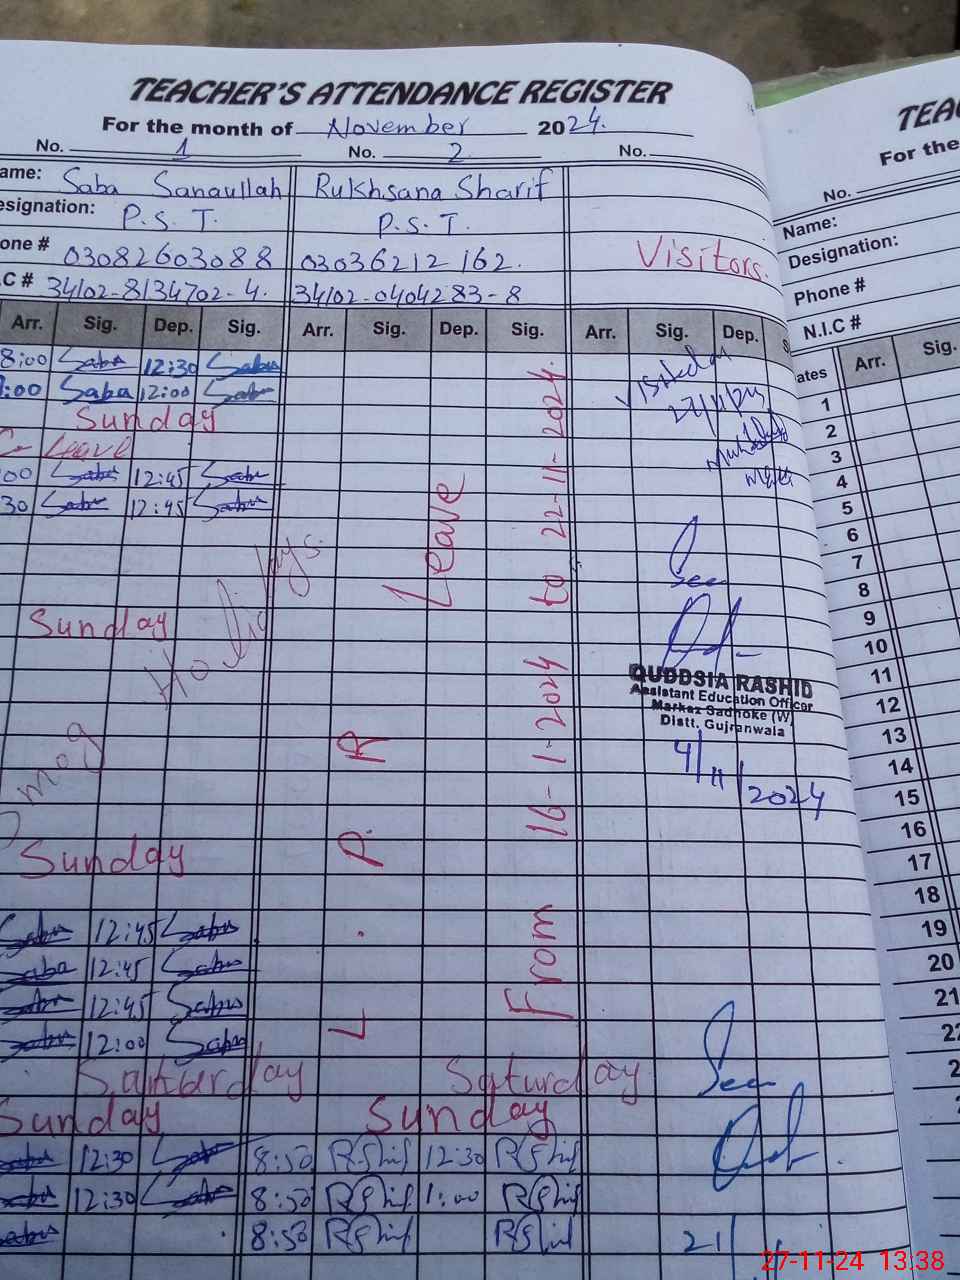 TEACHER'S ATTENDANCE REGISTER
For the month of November 2024.
No. 1 No. 2 No.
ame: Saba Sanaullah Rukhsana Sharif
esignation: P.S.T. P.S.T.
one # 03082603088 03036212162.
.C # 34102-8134702-4. 34102-0404283-8
Visitors.
Arr. Sig. Dep. Sig. Arr. Sig. Dep. Sig. Arr. Sig. Dep. S
8:00 Saba 12:30 Saba
:00 Saba 12:00 Saba
Sunday
C- Leave
00 Saba 12:45 Saba
30 Saba 12:45 Saba
Sunday
Smog Holidays.
Sunday
Saba 12:45 Saba
Saba 12:45 Saba
Saba 12:45 Saba
Saba 12:00 Saba
Saturday Saturday
Sunday Sunday
Saba 12:30 Saba 8:50 RShif 12:30 RShif
Saba 12:30 Saba 8:50 RShif 1:00 RShif
Saba 8:50 RShif RShif
L.P.R Leave
From 16-1-2024 to 22-11-2024.
Visited on
27/11/24
Seen
QUDDSIA RASHID
Assistant Education Officer
Markaz Sadhoke (W)
Distt. Gujranwala
4/11/2024
Seen
21/
TEA
For the
No.
Name:
Designation:
Phone #
N.I.C #
ates Arr. Sig.
1
2
3
4
5
6
7
8
9
10
11
12
13
14
15
16
17
18
19
20
21
22
2
27-11-24 13:38